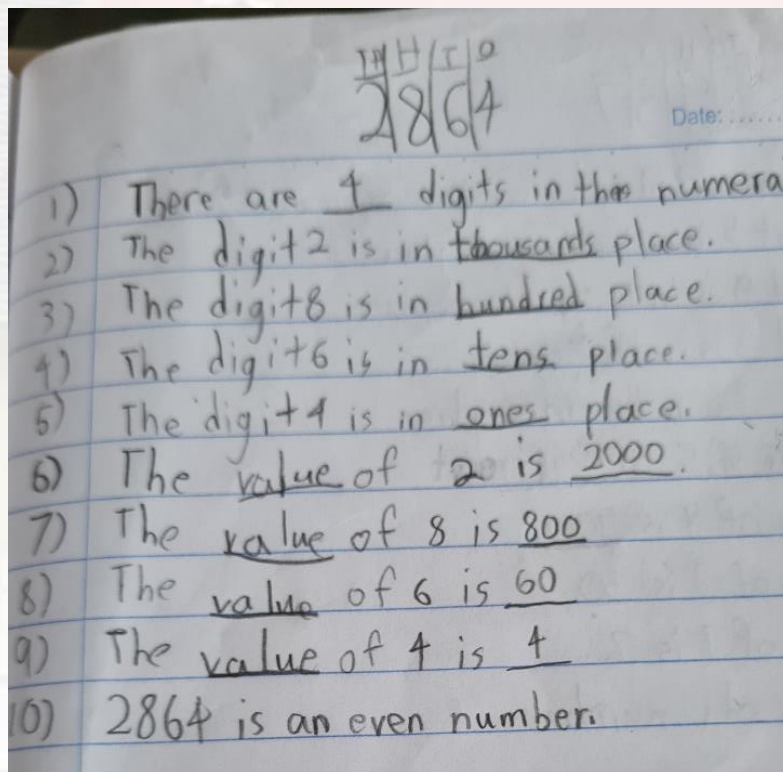 TH H T O
2 8 6 4
Date: ......
1) There are 4 digits in this numera
2) The digit 2 is in thousands place.
3) The digit 8 is in hundred place.
4) The digit 6 is in tens place.
5) The digit 4 is in ones place.
6) The value of 2 is 2000.
7) The value of 8 is 800
8) The value of 6 is 60
9) The value of 4 is 4
10) 2864 is an even number.